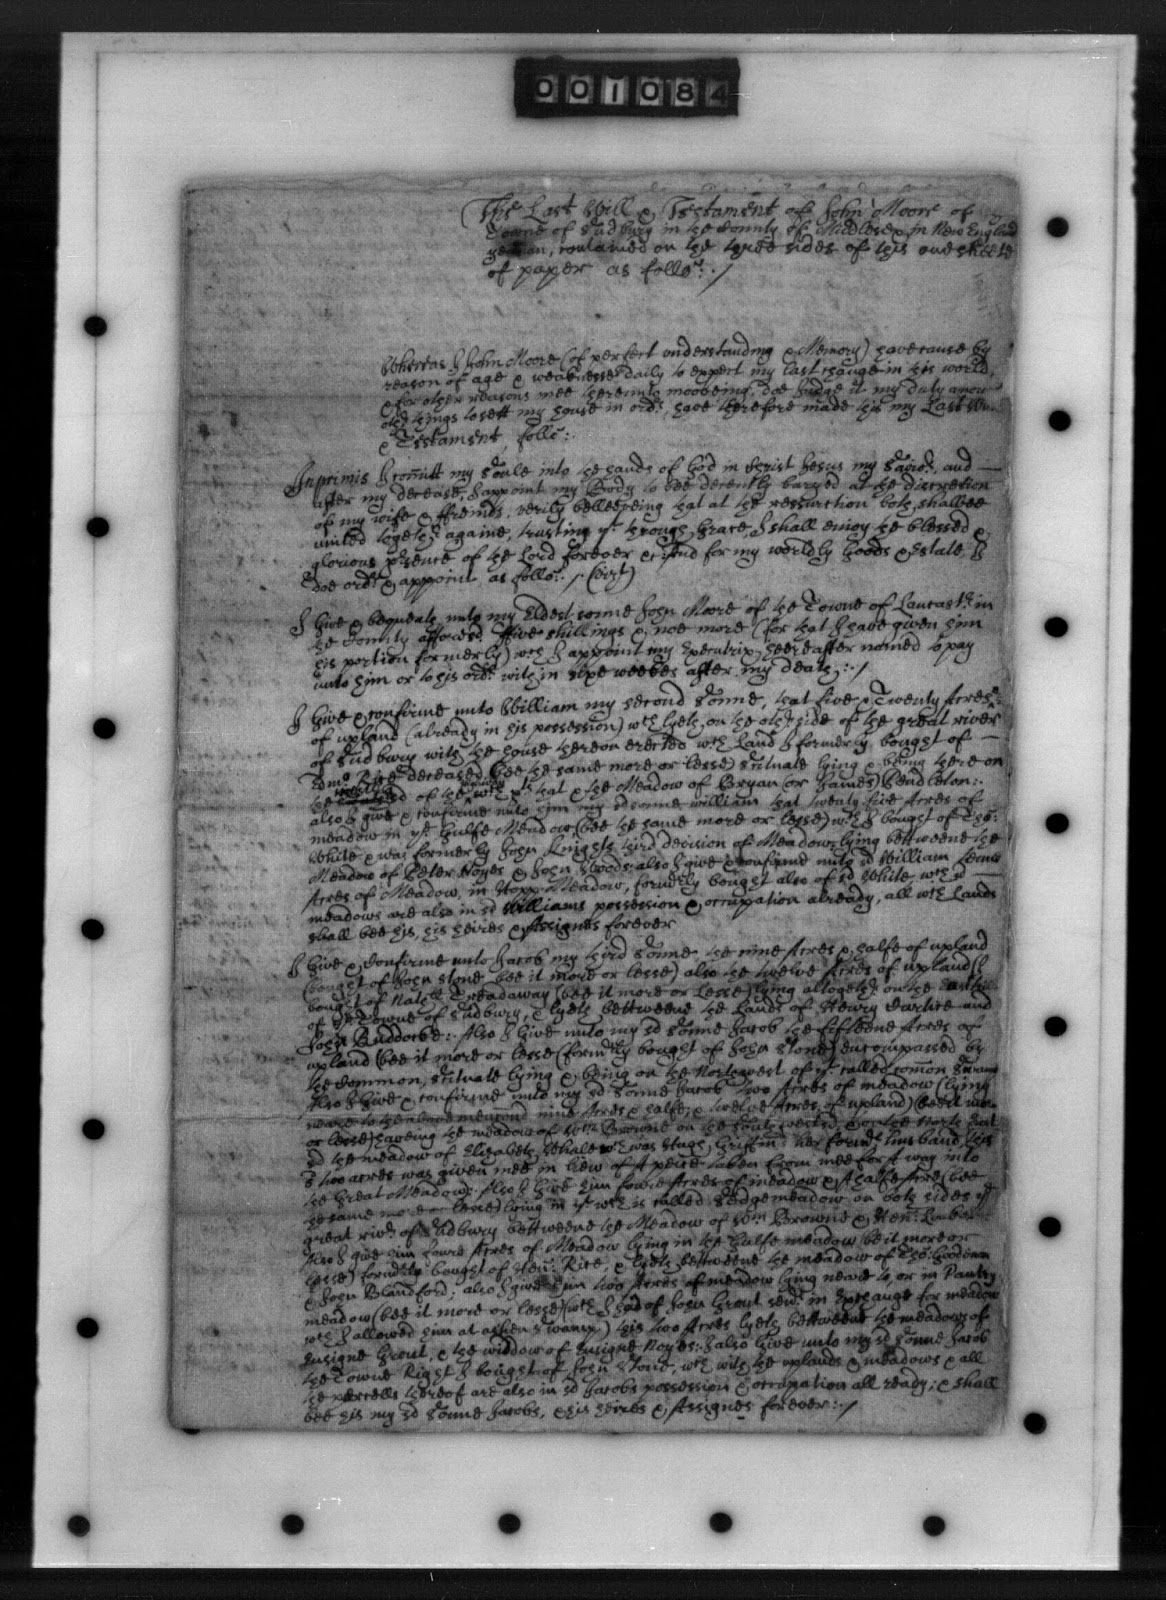 001084
The Last Will & Testament of John Moore of
Towne of Sudbury in the County of Middlesex in New England
yeoman, contained on the three sides of this one sheete
of paper as follo: /
Whereas I John Moore (of perfect understanding & Memory) have cause by
reason of age & weaknesse daily to expect my last change in this world,
& for other reasons mee thereunto mooveing, doe Judge it my duty
othr things to sett my house in ordr, have therefore made this my Last
& Testament, follo:
Inprimis I comitt my Soule into the hands of God in Christ Jesus my Saviour, and
after my decease, I appoint my Body to bee decently buryed at the discretion
of my wife & ffreinds, verily belleeveing that at the ressurction both shallbee
united togethr againe, trusting yt through Grace I shall enjoy the blessed &
glorious prsence of the Lord forever &c: And for my worldly Goods & Estate, I
doe ordr & appoint as follo: /
I Give & bequeath unto my Eldest sonne John Moore of the Towne of Lancastr in
the County aforesd ffive shillings & noe more (for that I have given him
his portion formerly) wch I appoint my Executrix heereafter named to pay
unto him or to his ordr within sixe weekes after my death: /
I Give & confirme unto William my second Sonne, that five & Twenty Acres
of upland (already in his possession) wch lyeth on the othr side of the great river
of Sudbury with the house thereon erected wch Land I formerly bought of
Edmo Rice deceased, bee the same more or lesse) scituate lying & being there on
the of the way & the Meadow of Bryan (or James) Pendleton:
also I give & confirme unto him my sd sonne William that twenty five Acres of
meadow in ye Gulfe Meadow (bee the same more or lesse) wch I bought of Tho:
White & was formerly John Knights third devision of Meadow lying bettweene the
Meadow of Peter Noyes & John Woods: also I give & confirme unto sd William
Acres of Meadow, in Hopp Meadow, formrly bought also of sd White, wch sd
meadows are also in sd Williams possession & occupation already, all wch Lands
shall bee his, his heires & Assignes forever
I Give & Confirme unto Jacob my third Sonne the nine Acres & halfe of upland
(bought of John Stone bee it more or lesse) also the twelve Acres of upland (I
bought of Nathll Treadaway (bee it more or Lesse) lying altogethr on the
of ye Towne of Sudbury, & lyeth bettweene the Lands of Henry Curtice and
John Ruddocke: Also I Give unto my sd Sonne Jacob the fifteene Acres of
upland (bee it more or lesse (formrly bought of John Stone) encompassed by
the Common, scituate lying & being on the Northwest of yt called comon Swamp
Also I Give & confirme unto my sd Sonne Jacob two Acres of meadow (lying
neare to the above mencond nine Acres & halfe, & twelve Acres of upland) (bee it more
or lesse) haveing the meadow of Wm Browne on the southwest, & on the North that
sd the meadow of Elizabeth Whale wch was Hugh Griffin her formr husband, this
sd two acres was given mee in liew of A peice taken from mee for A way into
the Great Meadow: Also I Give him foure Acres of meadow & A halfe Acre (bee
the same more or lesse) lying in yt wch is called Sedgemeadow on both sides ye
great rivr of Sudbury bettweene the Meadow of Wm Browne & Hen: Loker
Also I give him foure Acres of Meadow lying in the Gulfe meadow bee it more or
lesse) formrly bought of Hen: Rice, & lyeth bettweene the meadow of Tho: Goodenow
& John Blandford; also I give him two Acres of meadow lying neare to, or in Pantry
meadow (bee it more or lesse) (wch I had of John Grout senr in Exchange for meadow
wch I allowed him at ashen swamp) this two Acres lyeth bettweene the meadows of
Ensigne Grout & the widdow of Ensigne Noyes: I also Give unto my sd Sonne Jacob
the Towne Right I bought of John Stone, wch with the uplands & meadows & all
the percells thereof are also in sd Jacobs possession & occupation all ready; & shall
bee his my sd Sonne Jacobs, & his heires & Assignes forever: /